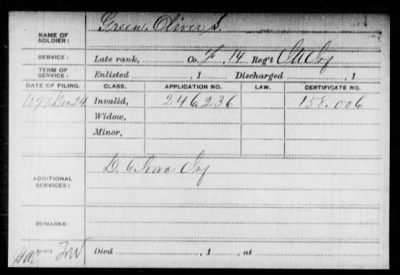 NAME OF SOLDIER: Green, Oliver S.
SERVICE: Late rank, Co. F, 14 Reg't Inf
TERM OF SERVICE: Enlisted , 1 Discharged , 1
DATE OF FILING. CLASS. APPLICATION NO. LAW. CERTIFICATE NO.
Invalid, 246,236 158,006
Widow,
Minor,
ADDITIONAL SERVICES: D. 6 Iowa Inf
REMARKS:
Died , 1 , at